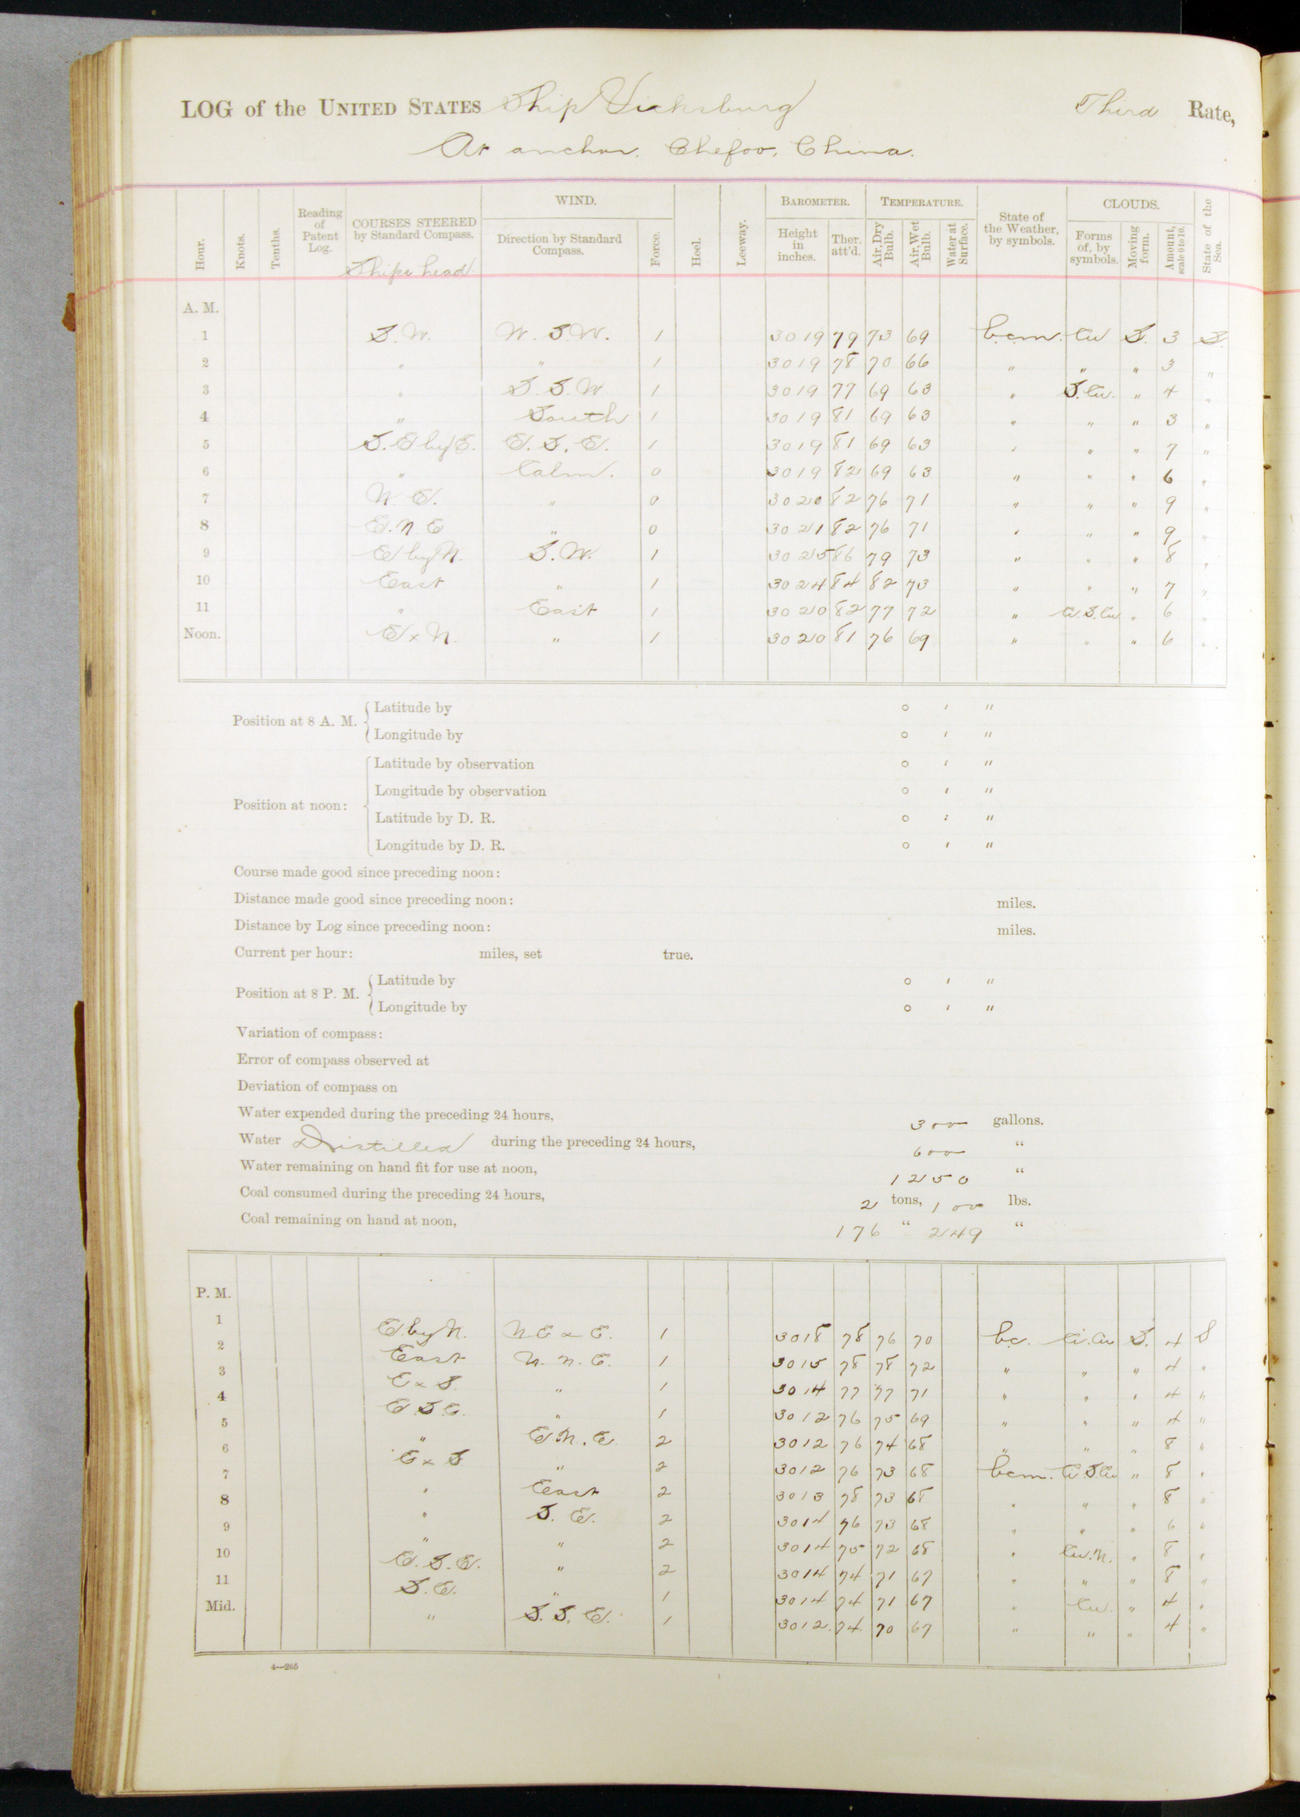 LOG of the UNITED STATES Ship Vicksburg Third Rate,
At anchor. Chefoo, China.
Hour. Knots. Tenths. Reading of Patent Log. COURSES STEERED by Standard Compass. WIND. Direction by Standard Compass. Force. Heel. Leeway. BAROMETER. Height in inches. Ther. att'd. TEMPERATURE. Air, Dry Bulb. Air, Wet Bulb. Water at Surface. State of the Weather, by symbols. CLOUDS. Forms of, by symbols. Moving form. Amount, scale 0 to 10. State of the Sea.
Ships head
A. M.
1 S.W. W.S.W. 1 3019 79 73 69 b.c.m. Cu S. 3 S.
2 " " 1 3019 78 70 66 " " " 3 "
3 " S.S.W 1 3019 77 69 63 " S.Cu. " 4 "
4 " South 1 3019 81 69 63 " " " 3 "
5 S.E by E. E.S.E. 1 3019 81 69 63 " " " 7 "
6 " Calm. 0 3019 82 69 63 " " " 6 "
7 N.E. " 0 3020 82 76 71 " " " 9 "
8 E.N.E " 0 3021 82 76 71 " " " 9 "
9 E by N. S.W. 1 3025 86 79 73 " " " 8 "
10 East " 1 3024 84 82 73 " " " 7 "
11 " East 1 3020 82 77 72 " Ci.S.Cu " 6 "
Noon. E x N. " 1 3020 81 76 69 " " " 6 "
Position at 8 A. M. Latitude by ° ' "
Longitude by ° ' "
Position at noon: Latitude by observation ° ' "
Longitude by observation ° ' "
Latitude by D. R. ° ' "
Longitude by D. R. ° ' "
Course made good since preceding noon:
Distance made good since preceding noon: miles.
Distance by Log since preceding noon: miles.
Current per hour: miles, set true.
Position at 8 P. M. Latitude by ° ' "
Longitude by ° ' "
Variation of compass:
Error of compass observed at
Deviation of compass on
Water expended during the preceding 24 hours, 300 gallons.
Water Distilled during the preceding 24 hours, 600 "
Water remaining on hand fit for use at noon, 1250 "
Coal consumed during the preceding 24 hours, 2 tons, 100 lbs.
Coal remaining on hand at noon, 176 " 249 "
P. M.
1 E by N. N E x E. 1 3018 78 76 70 bc. Ci.Cu S. 4 S
2 East N.N.E. 1 3015 78 78 72 " " " 4 "
3 E x S. " 1 3014 77 77 71 " " " 4 "
4 E.S.E. " 1 3012 76 75 69 " " " 4 "
5 " E.N.E. 2 3012 76 74 68 " " " 8 "
6 E x S " 2 3012 76 73 68 bcm. Ci.S.Cu " 8 "
7 " East 2 3013 78 73 68 " " " 8 "
8 " S.E. 2 3014 76 73 68 " " " 6 "
9 " " 2 3014 75 72 68 " Cu.N. " 8 "
10 E.S.E. " 2 3014 74 71 67 " " " 8 "
11 S.E. " 1 3014 74 71 67 " Cu. " 4 "
Mid. " S.S.E. 1 3012 74 70 67 " " " 4 "
4—265